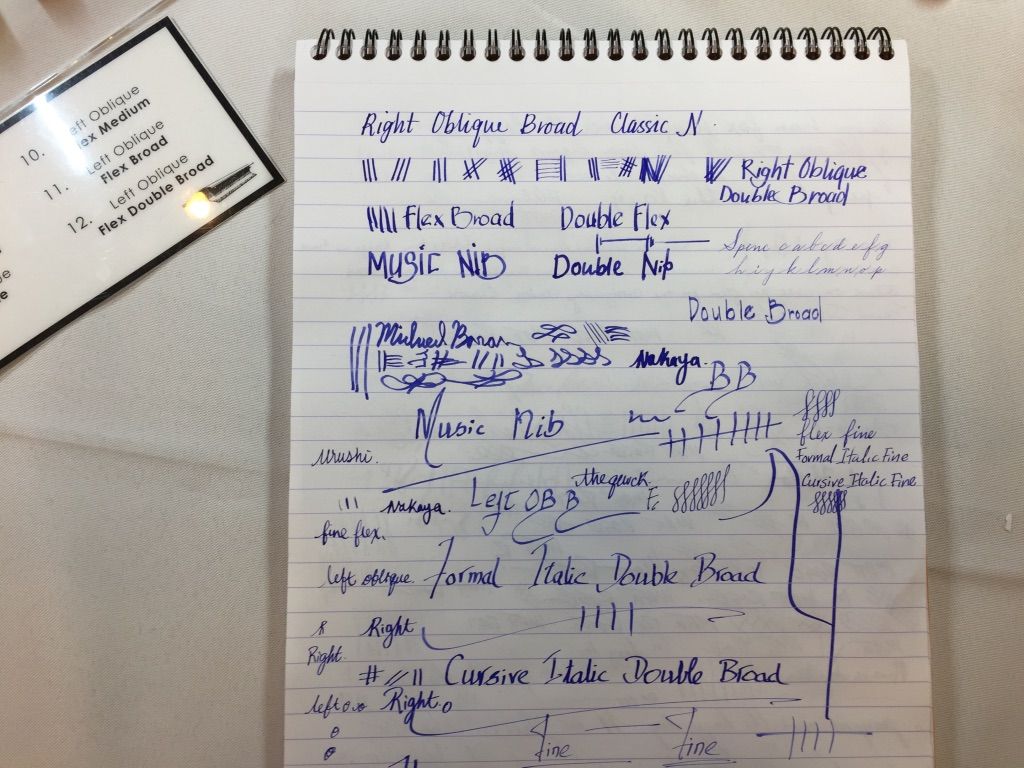 10. Left Oblique
Flex Medium
11. Left Oblique
Flex Broad
12. Left Oblique
Flex Double Broad
Right Oblique Broad Classic N.
Right Oblique
Double Broad
Flex Broad Double Flex
MUSIC NIB Double Nib
a b c d e f g
h i j k l m n o p
Double Broad
Nakaya.
BB
Music Nib
flex fine
Urushi.
Formal Italic Fine
the quick
Cursive Italic Fine
Nakaya. Left OBB F
fine flex.
left oblique. Formal Italic Double Broad
Right
Right.
# Cursive Italic Double Broad
left Right.
fine fine